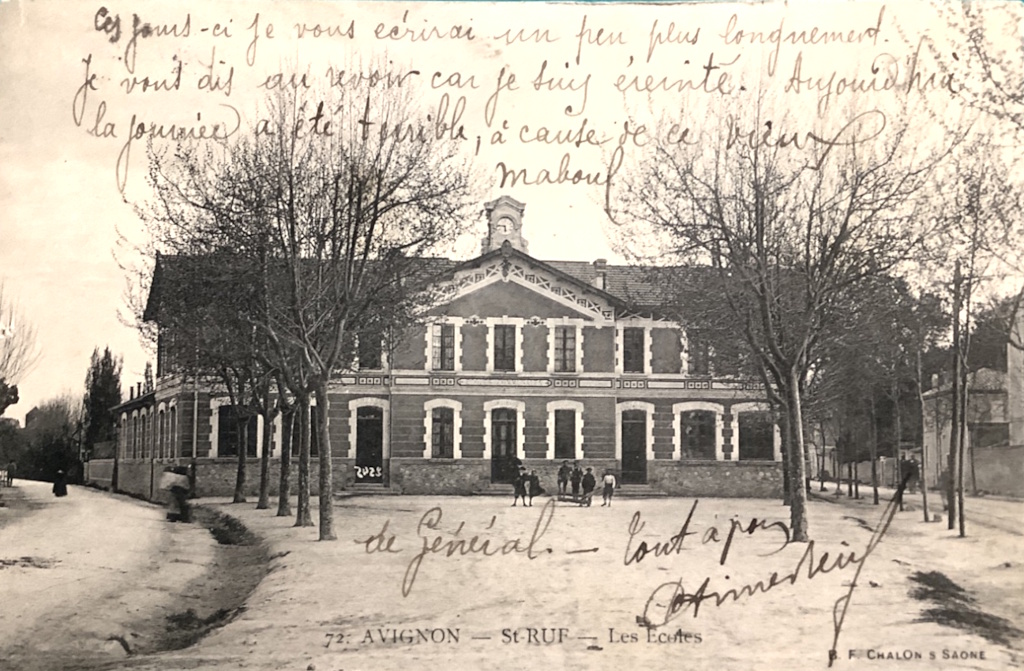 Ces jours-ci je vous écrirai un peu plus longuement.
Je vous dis au revoir car je suis éreinté. Aujourd'hui
la journée a été terrible, à cause de ce vieux
maboul
de Général. — Tout à
2025
72. AVIGNON — St-RUF — Les Ecoles
B. F. CHALON S SAONE